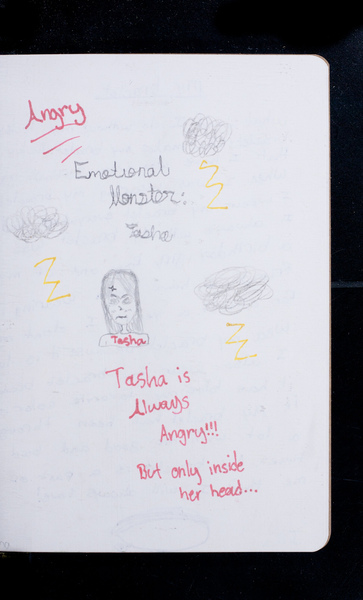 Angry
Emotional
Monster:
Tasha
Tasha
Tasha is
Always
Angry!!!
But only inside
her head...